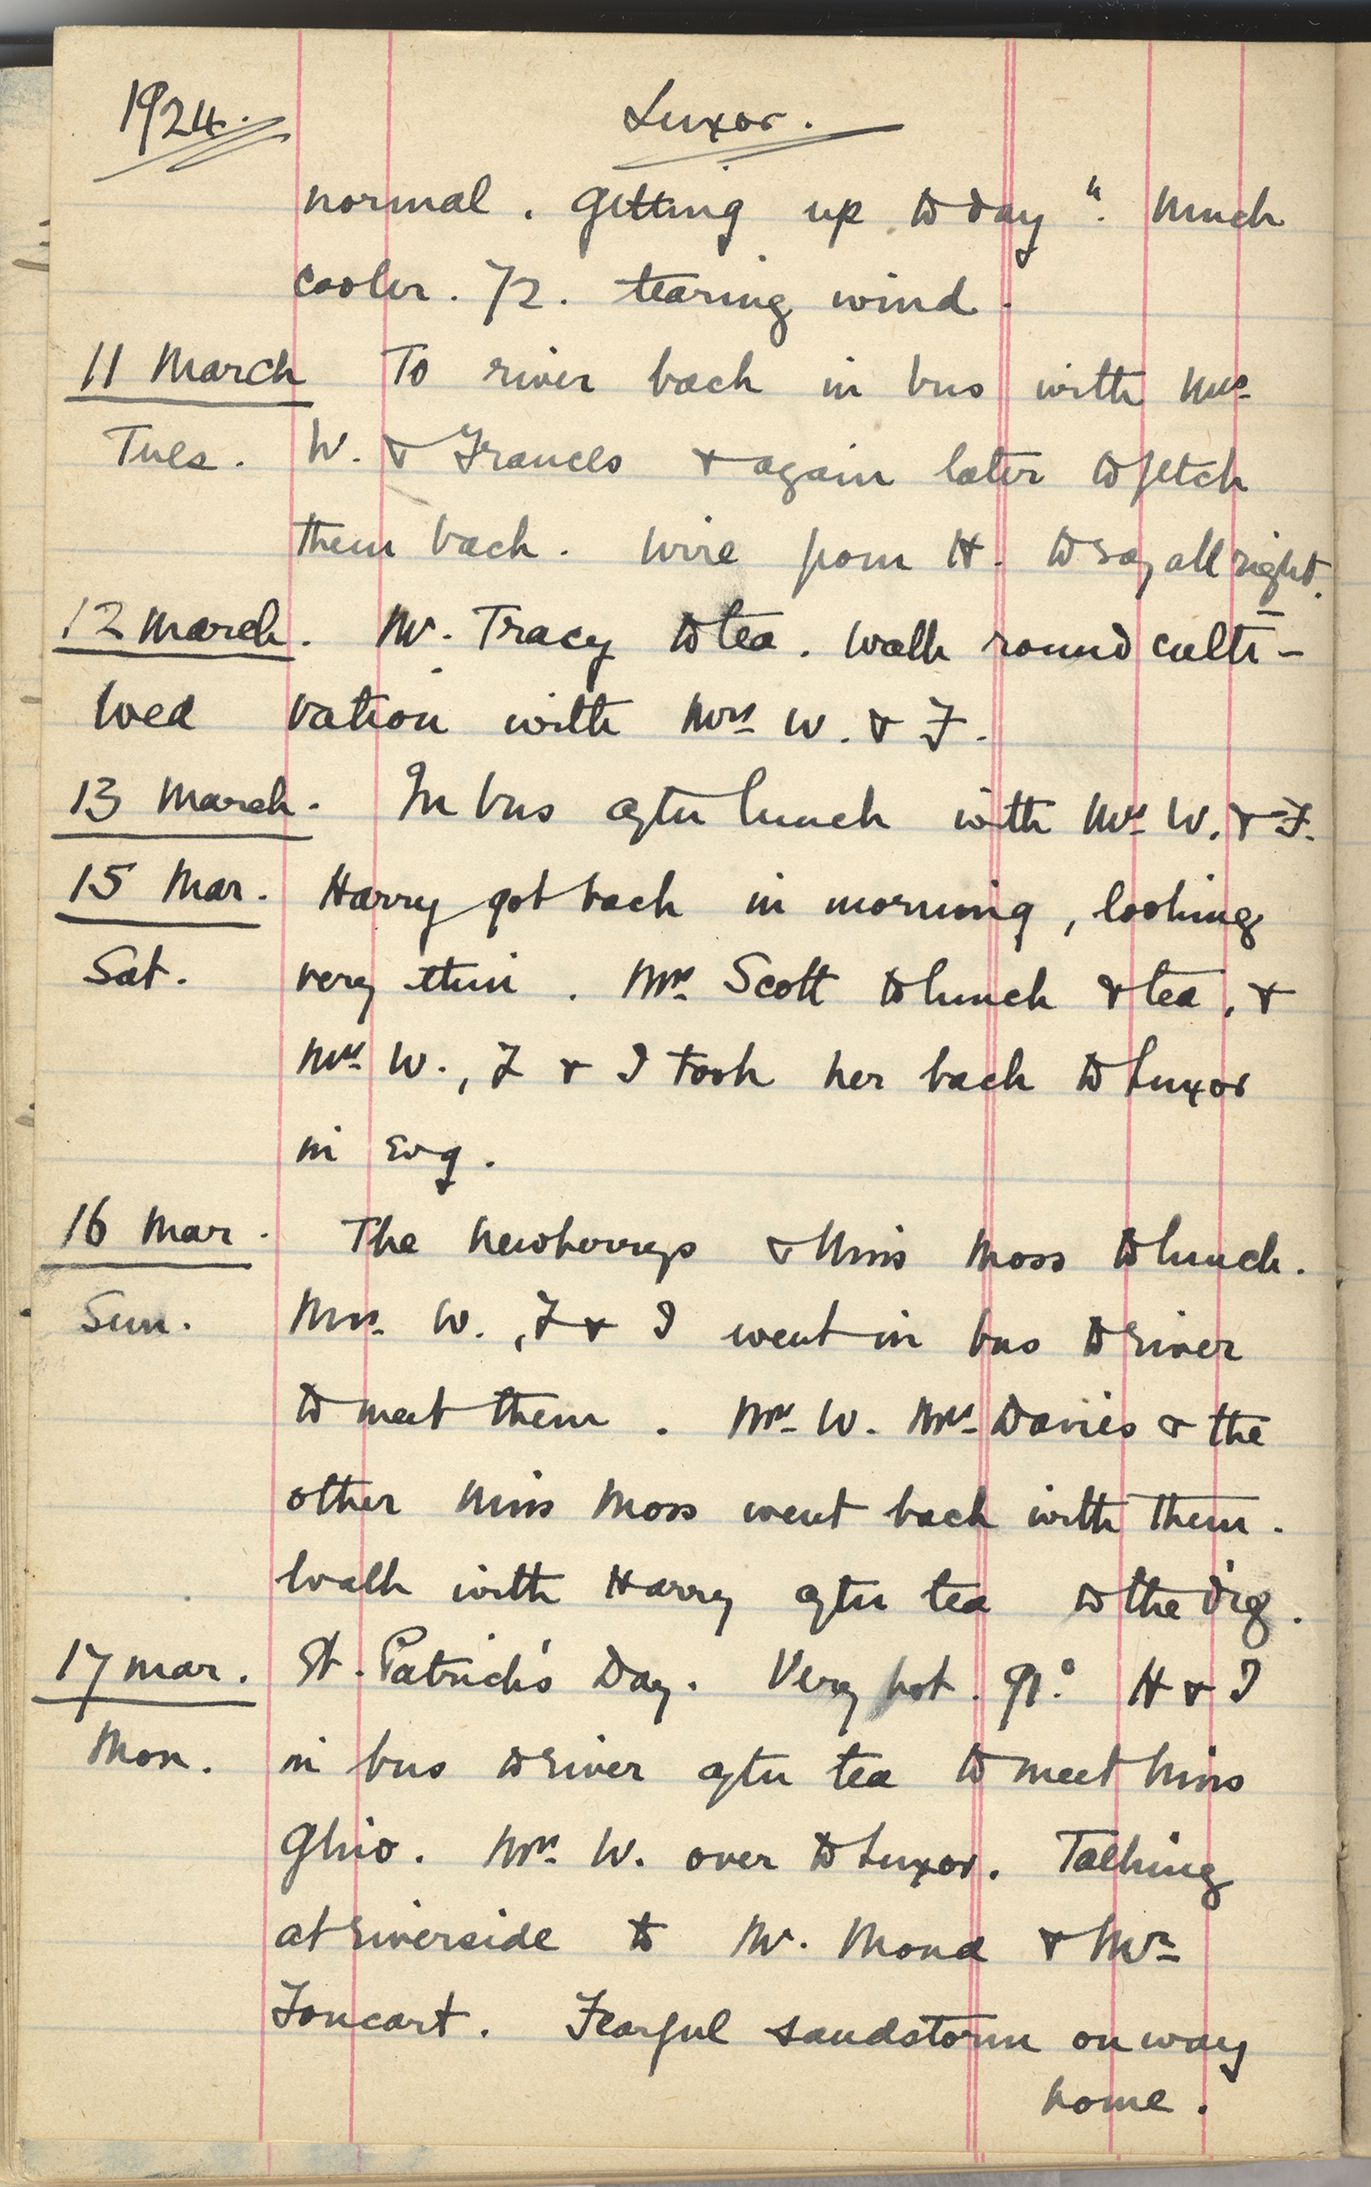 1924. Luxor.
normal. Getting up today". Much
cooler. 72. tearing wind.
11 March To river back in bus with Mrs
Tues. W. & Frances & again later to fetch
them back. Wire from H. to say all right.
12 March. Mr. Tracy to tea. Walk round culti-
Wed vation with Mrs W. & F.
13 March. In bus after lunch with Mrs W. & F.
15 Mar. Harry got back in morning, looking
Sat. very thin. Mrs. Scott to lunch & tea, &
Mrs W., F & I took her back to Luxor
in evg.
16 Mar. The Newberrys & Miss Moss to lunch.
Sun. Mrs. W., F & I went in bus to river
to meet them. Mrs W. Mrs Davies & the
other Miss Moss went back with them.
Walk with Harry after tea to the dig.
17 Mar. St. Patrick's Day. Very hot. 91°. H & I
Mon. in bus to river after tea to meet Miss
Ghio. Mrs. W. over to Luxor. Talking
at riverside to Mr. Mond & Mr
Foucart. Fearful sandstorm on way
home.